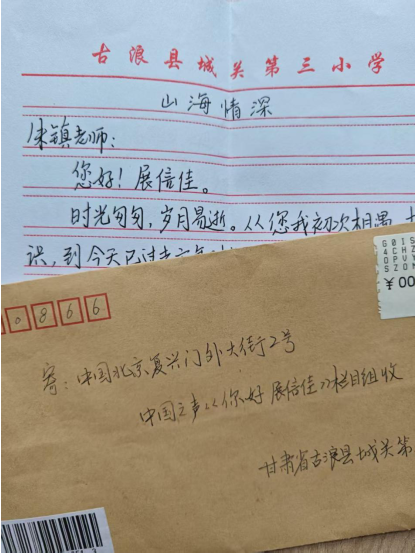 古浪县城关第三小学
山海情深
陈镇老师：
您好！展信佳。
时光匆匆，岁月易逝。从您我初次相遇、
识，到今天已过去
00866
寄：中国北京复兴门外大街2号
中国之声《你好 展信佳》栏目组收
甘肃省古浪县城关第
G01S
4CHZ
DPVY
SZDN
¥00